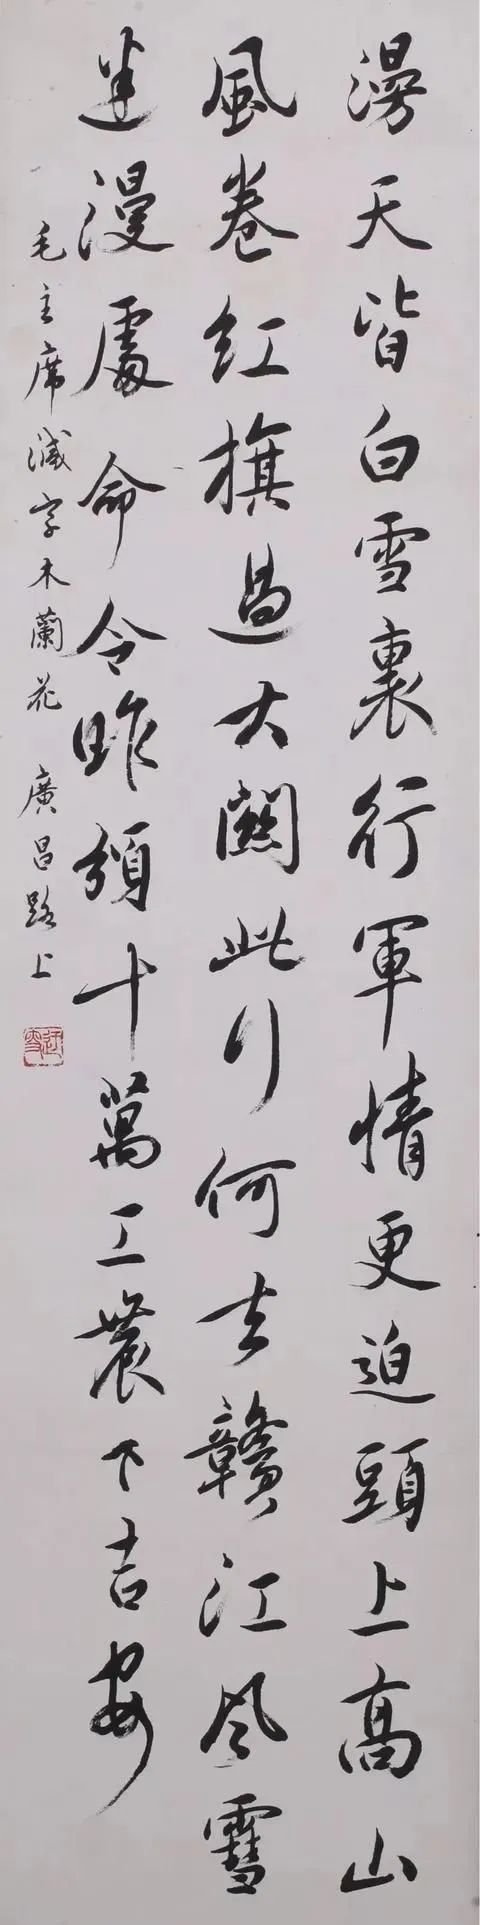 漫天皆白雪裏行軍情更迫頭上高山
風卷紅旗過大關此行何去贛江风雪
迷漫處命令昨頒十萬工農下吉安
毛主席減字木蘭花 廣昌路上